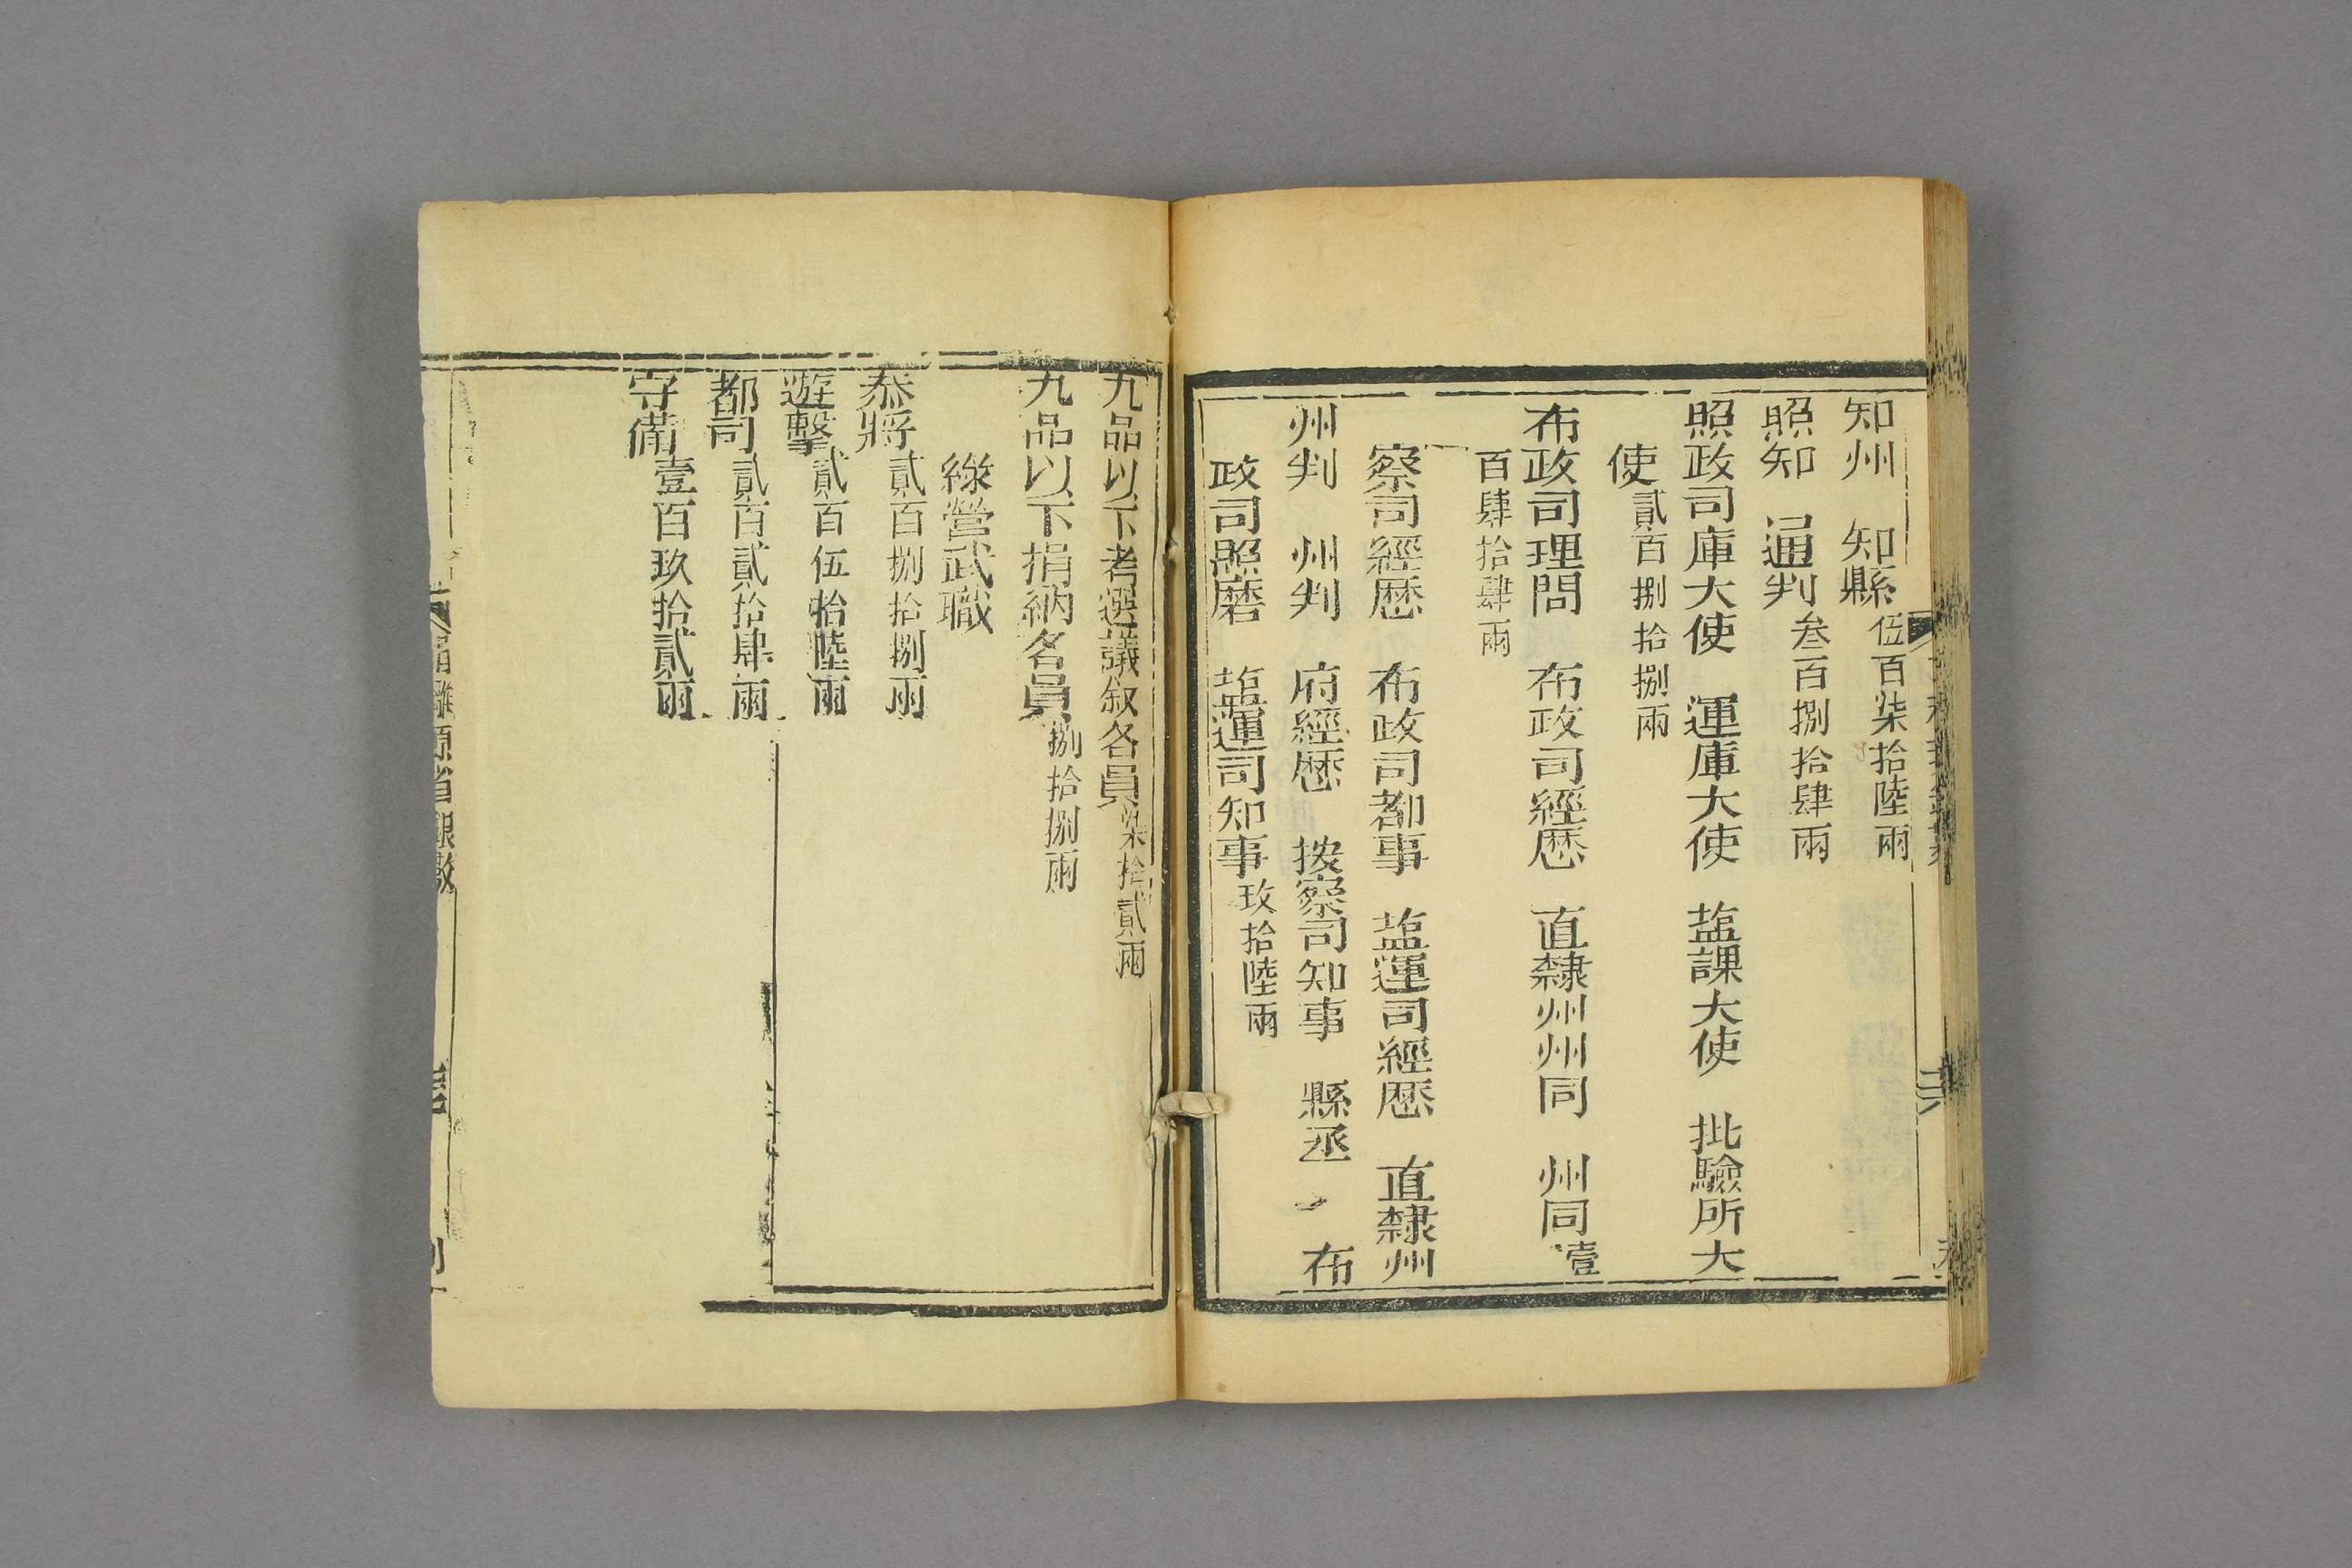 知州　知縣伍百柒拾陸兩
照知　通判叁百捌拾肆兩
照政司庫大使　運庫大使　塩課大使　批驗所大
使貳百捌拾捌兩
布政司理問　布政司經歷　直隸州州同　州同壹
百肆拾肆兩
察司經歷　布政司都事　塩運司經歷　直隸州
州判　州判　府經歷　按察司知事　縣丞　布
政司照磨　塩運司知事玖拾陸兩
九品以下考選議叙各員柒拾貳兩
九品以下捐納各員捌拾捌兩
綠營武職
叅將貳百捌拾捌兩
遊擊貳百伍拾陸兩
都司貳百貳拾肆兩
守備壹百玖拾貳兩